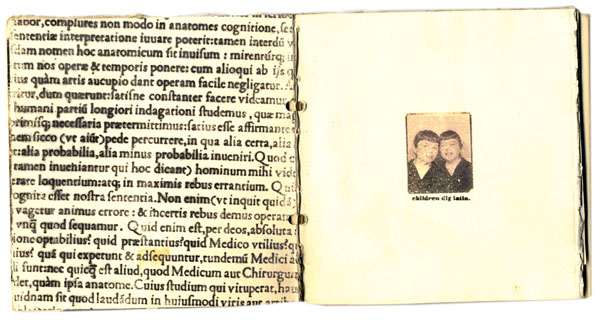 labor, complures non modo in anatomes cognitione, sed
sententiæ interpretatione iuuare poterit: tamen interdũ v
dam nomen hoc anatomicum sit inuisum: mirentúrq; in
tum nos operæ & temporis ponere: cum alioqui ab ijs q
ius quàm artis aucupio dant operam facile negligatur.
ritur, dum quærunt: satísne constanter facere videamur
humani partiũ longiori indagationi studemus, quæ mag
primísq; necessaria prætermittimus: satius esse affirmante
hem sicco (vt aiũt) pede percurrere, in qua alia certa, alia
t: alia probabilia, alia minus probabilia inueniri. Quod c
tamen inuehiantur qui hoc dicant) hominum mihi vide
erate loquentium: atq; in maximis rebus errantium. Q
ognita esset nostra sententia. Non enim (vt inquit quidã
vagetur animus errore: & incertis rebus demus operam
vnq̃ quod sequamur. Quid enim est, per deos, absoluta
ione optabilius? quid præstantius? quid Medico vtilius? q
nius? quã qui expetunt & adsequuntur, tundemũ Medici a
di sunt: nec quicq̃ est aliud, quod Medicum aut Chirurgu
det, quàm ipsa anatome. Cuius studium qui vituperat, ha
uidnam sit quod laudãdum in huiusmodi viris aut artib
children dig latin.